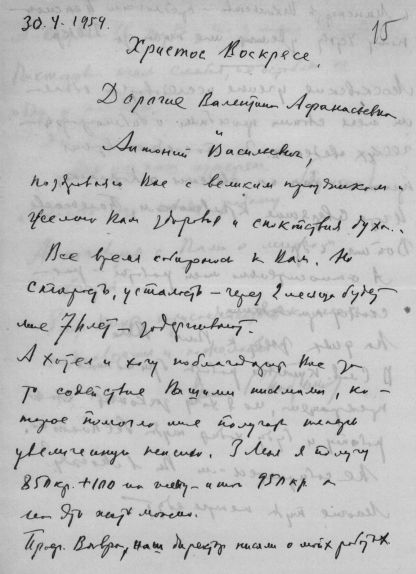 30.4.1959.
15
Христос Воскресе.
Дорогие Валентина Афанасьевна
и
Антоний Васильевич,
поздравляю Вас с великим праздником и
желаю Вам здоровья и спокойствия духа..
Все время собираюсь к Вам. Но
старость, усталость – через 2 месяца будет
мне 74 лет – задерживают.
А хотел и хочу поблагодарить Вас за
то содействие Вашими письмами, ко-
торое помогло мне получать теперь
увеличенную пенсию. З Лени я получу
850 кр. + 100 на жену – итого 950 кр. а
жить можно.
Проф. Вавра, наш директор писали о моих работах.